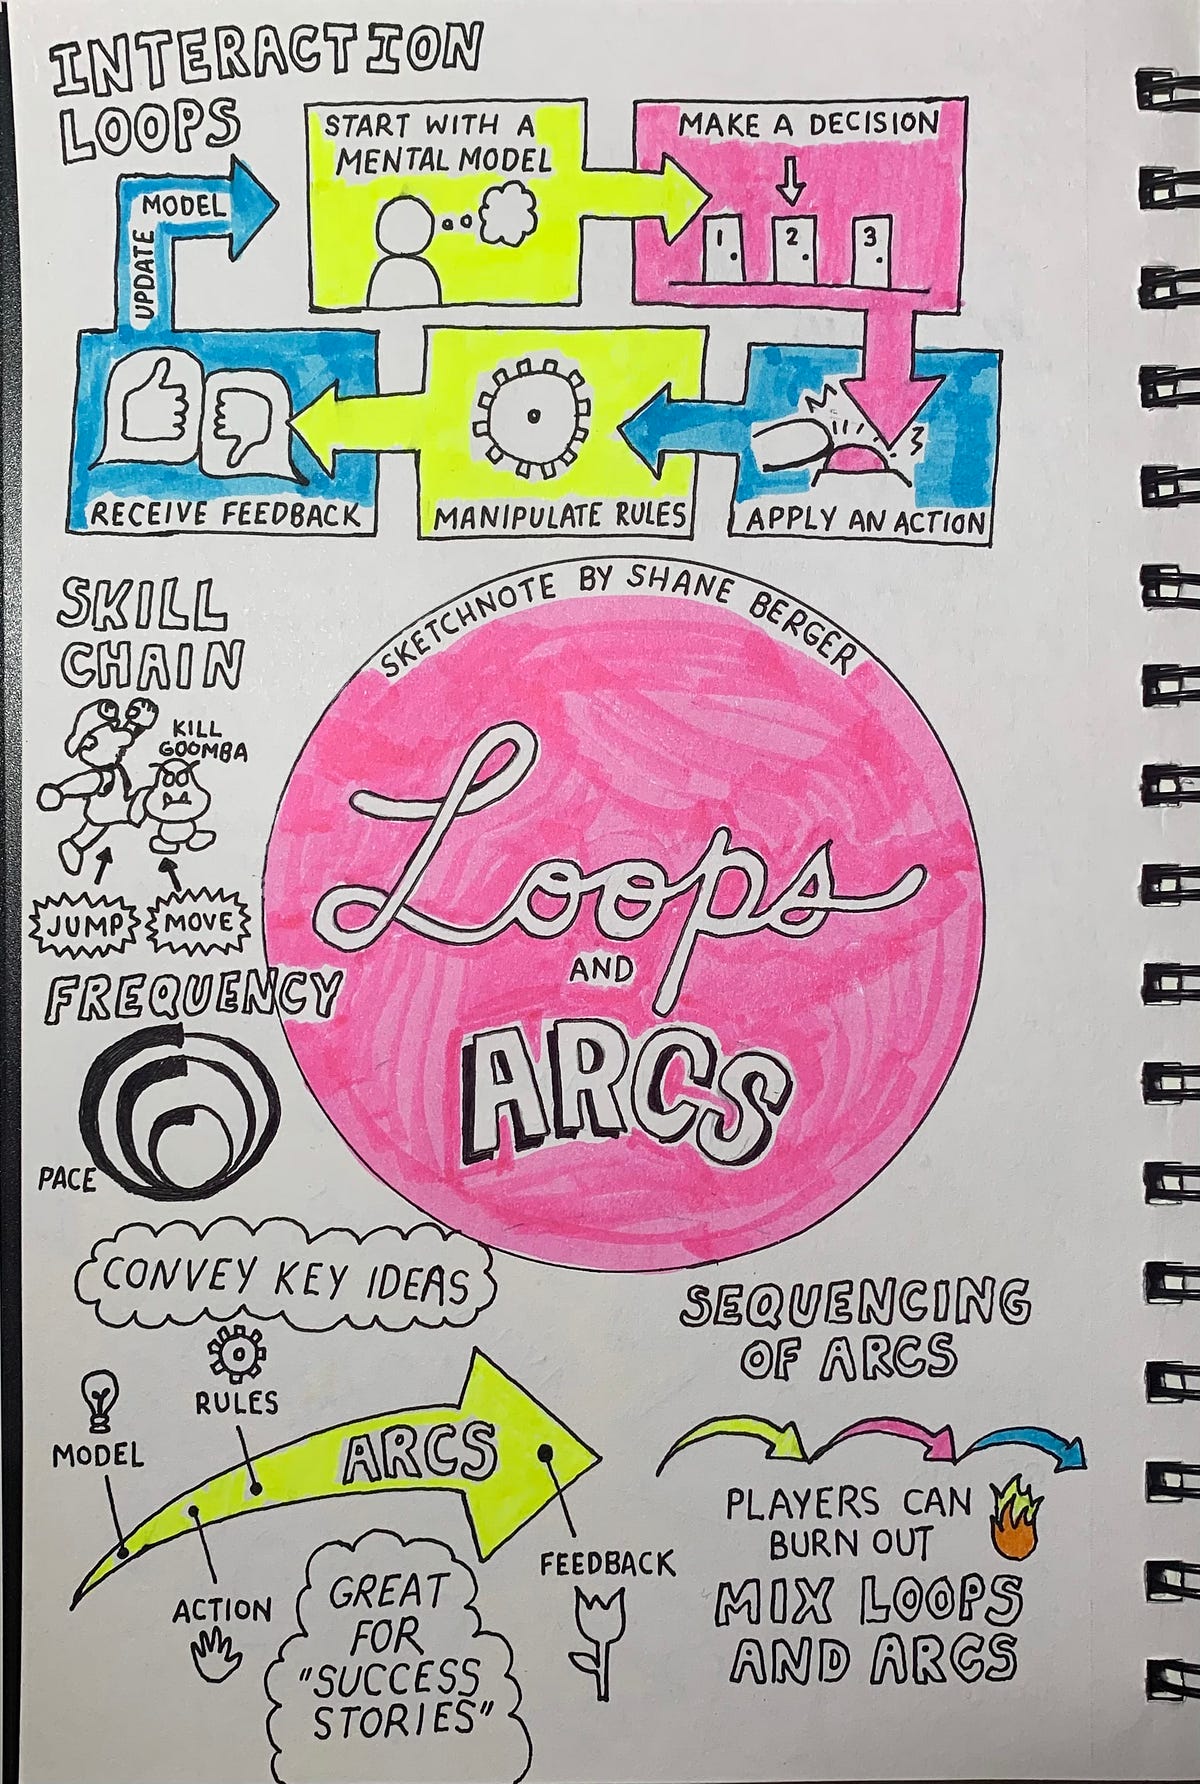 INTERACTION
LOOPS
START WITH A
MENTAL MODEL
MAKE A DECISION
1
2
3
APPLY AN ACTION
MANIPULATE RULES
RECEIVE FEEDBACK
UPDATE
MODEL
SKETCHNOTE BY SHANE BERGER
Loops
AND
ARCS
SKILL
CHAIN
KILL
GOOMBA
JUMP
MOVE
FREQUENCY
PACE
CONVEY KEY IDEAS
MODEL
RULES
ARCS
ACTION
FEEDBACK
GREAT
FOR
"SUCCESS
STORIES"
SEQUENCING
OF ARCS
PLAYERS CAN
BURN OUT
MIX LOOPS
AND ARCS